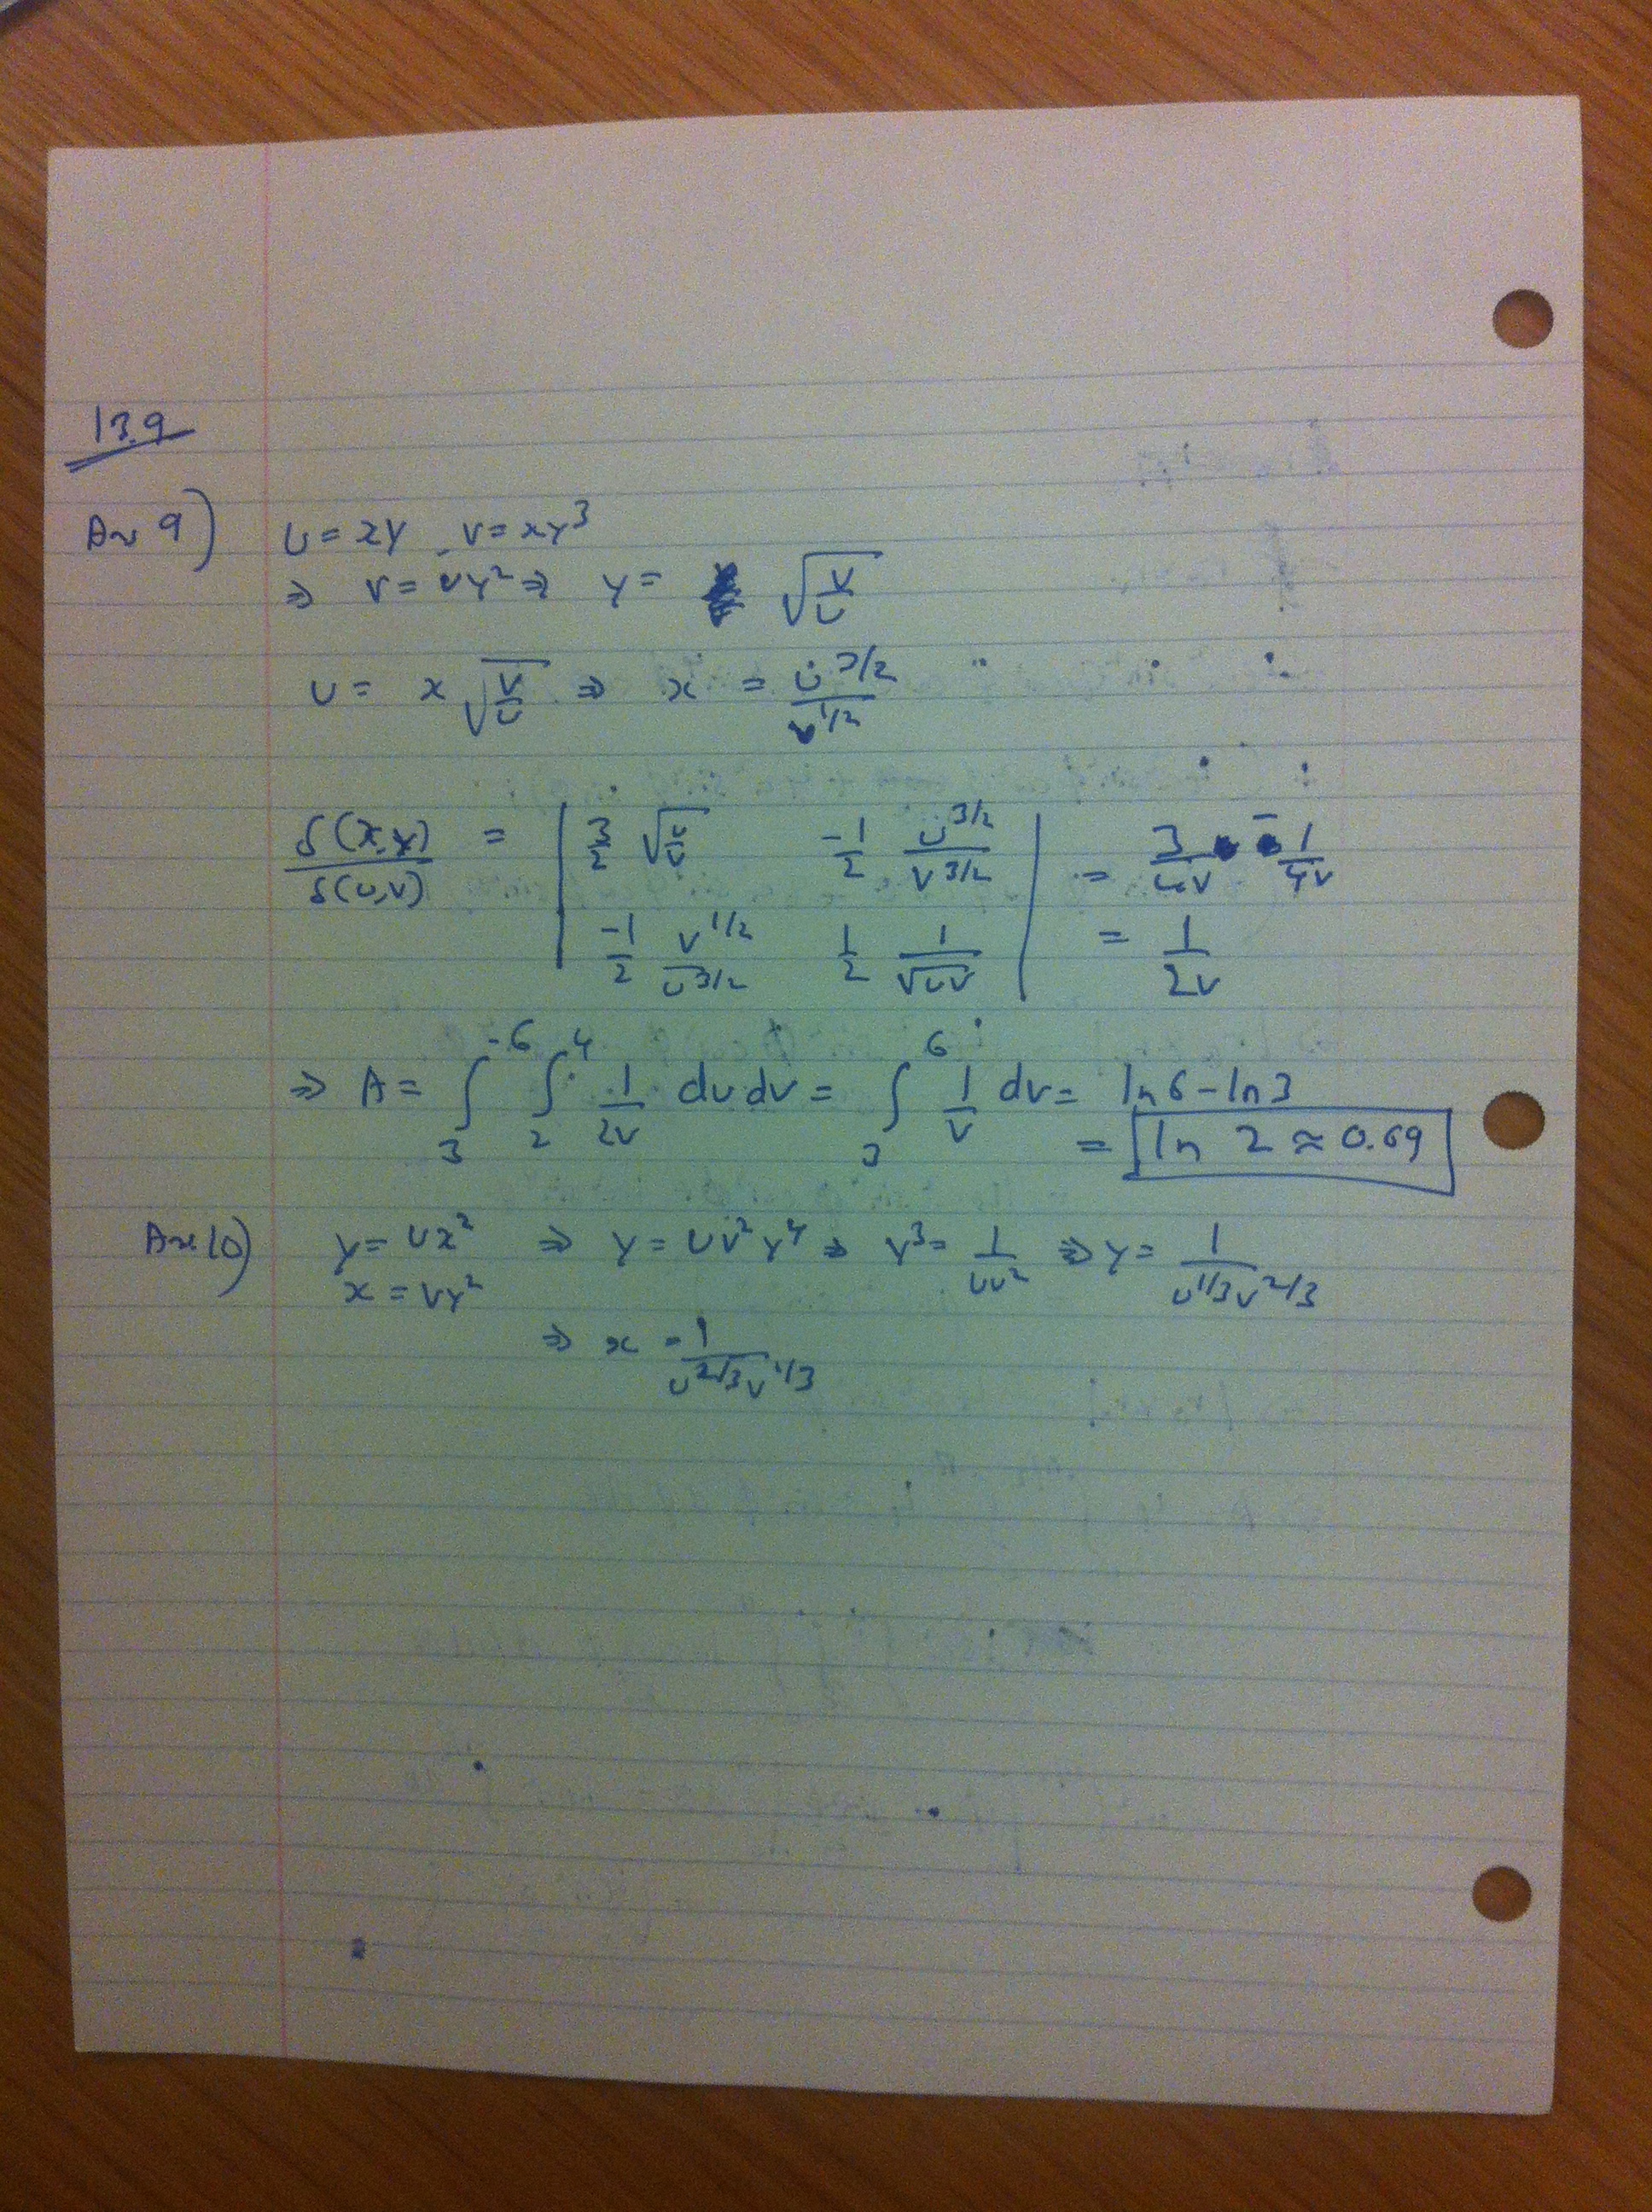 13.9
Ans 9) u = xy, v = xy³
⇒ v = uy² ⇒ y = √(v/u)
u = x √(v/u) ⇒ x = u^(3/2) / v^(1/2)
δ(x,y)/δ(u,v) = | 3/2 √(u/v)   -1/2 u^(3/2)/v^(3/2) | = 3/4v - 1/4v
| -1/2 v^(1/2)/u^(3/2)   1/2 1/√(uv) | = 1/2v
⇒ A = ∫₃⁶ ∫₂⁴ 1/2v du dv = ∫₃⁶ 1/v dv = ln 6 - ln 3
= ln 2 ≈ 0.69
Ans 10) y = ux² ⇒ y = uv²y⁴ ⇒ y³ = 1/uv² ⇒ y = 1/(u^(1/3) v^(2/3))
x = vy²
⇒ x = 1/(u^(2/3) v^(1/3))